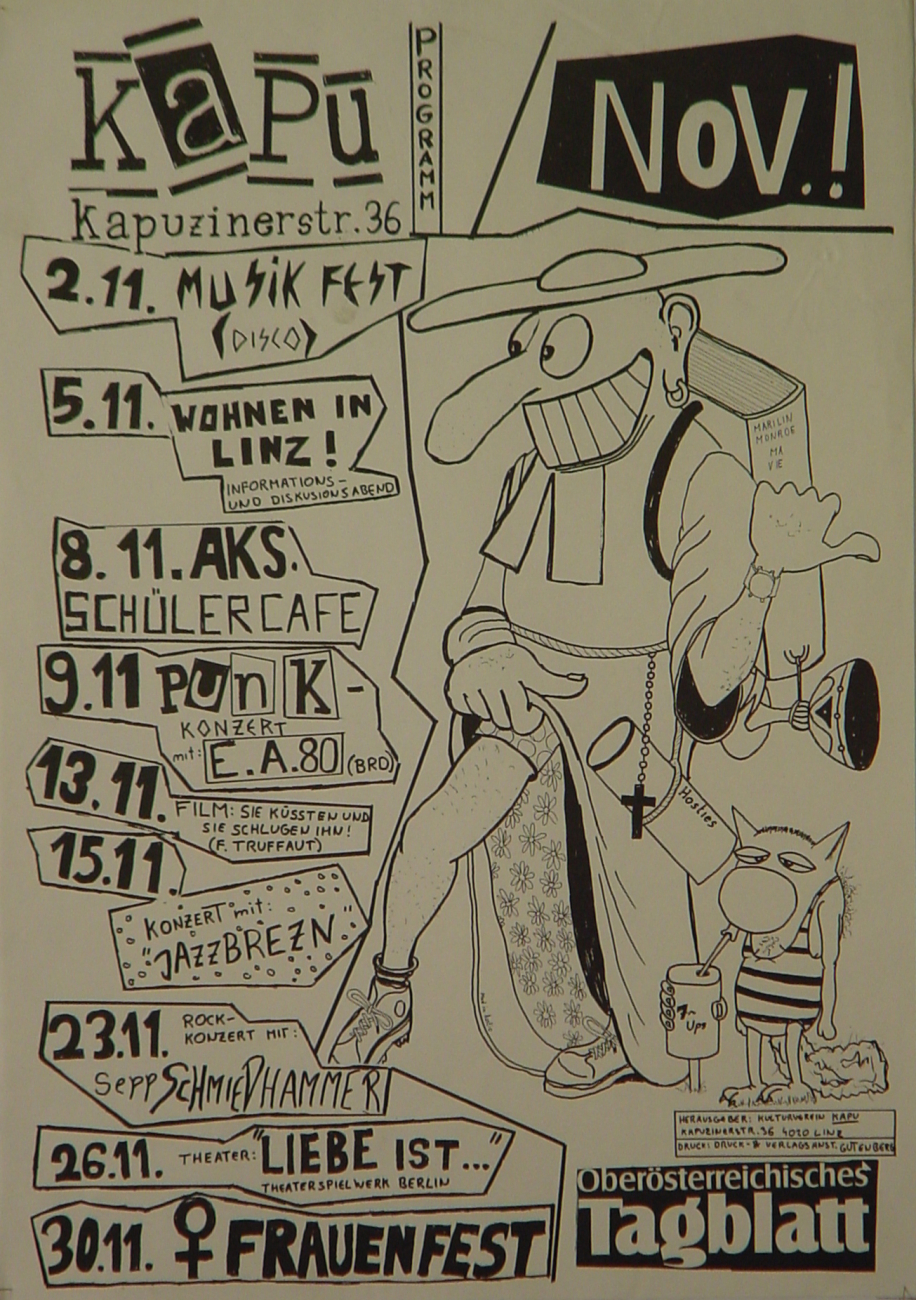 Kapu
PROGRAMM
NOV.!
Kapuzinerstr.36
2.11. MUSIK FEST
(DISCO)
5.11. WOHNEN IN
LINZ!
INFORMATIONS-
UND DISKUSIONSABEND
8.11. AKS.
SCHÜLERCAFE
9.11 PUNK-
KONZERT
mit: E.A.80 (BRD)
13.11. FILM: SIE KÜSSTEN UND
SIE SCHLUGEN IHN!
(F. TRUFFAUT)
15.11.
KONZERT mit:
"JAZZBREZN"
23.11. ROCK-
KONZERT MIT:
Sepp SCHMIEDHAMMER
26.11. THEATER: "LIEBE IST..."
THEATERSPIELWERK BERLIN
30.11. ♀ FRAUENFEST
MARILIN
MONROE
MA
VIE
Hosties
7-
Up
HERAUSGEBER: KULTURVEREIN KAPU
KAPUZINERSTR.36 4020 LINZ
DRUCK: DRUCK- & VERLAGSANST. GUTENBERG
Oberösterreichisches
Tagblatt